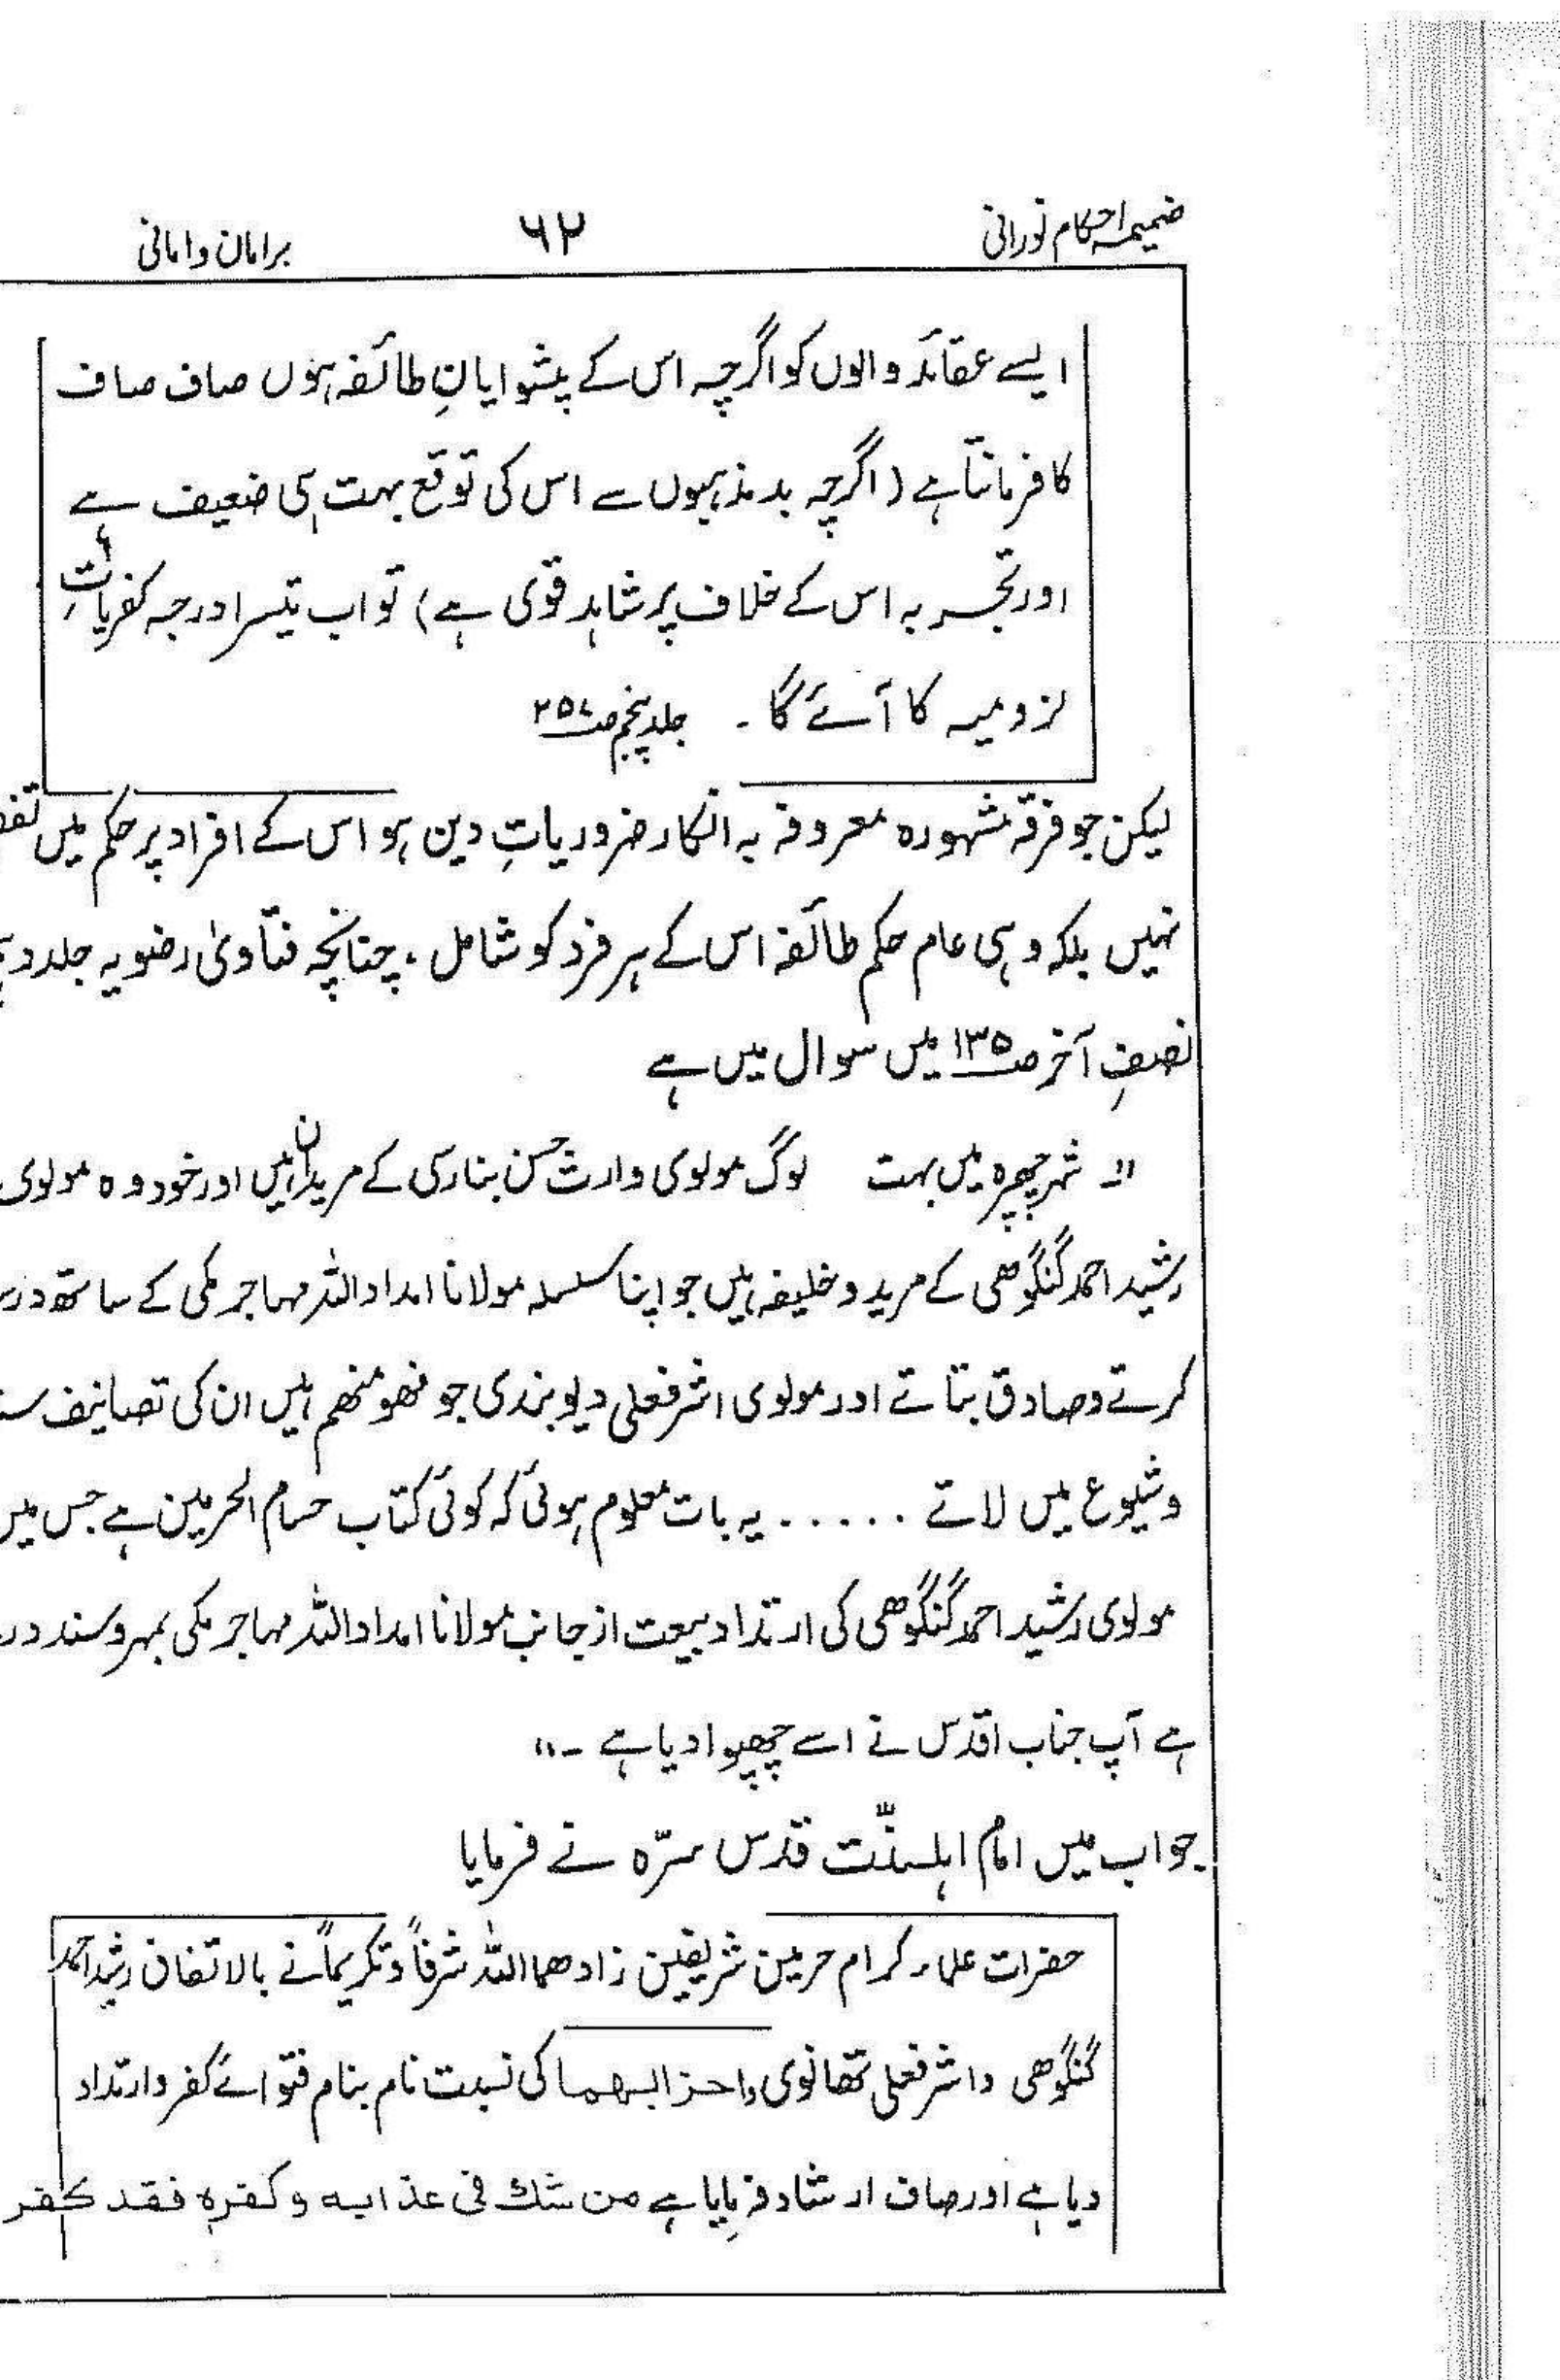 ضمیمہ احکام نورانی ۶۲ برامان وامانی
ایسے عقائد والوں کو اگرچہ اس کے پیشوایانِ طائفہ ہوں صاف صاف
کافر مانتا ہے (اگرچہ بدمذہبوں سے اس کی توقع بہت ہی ضعیف ہے
اور تجربہ اس کے خلاف پر شاہد قوی ہے) تو اب تیسرا درجہ کفریاتِ
لزومیہ کا آئے گا ۔ جلد پنجم ص۲۵۷
لیکن جو فرقہ مشہورہ معروفہ بہ انکار ضروریاتِ دین ہو اس کے افراد پر حکم میں
نہیں بلکہ وہی عام حکم طائفہ اس کے ہر فرد کو شامل ، چنانچہ فتاویٰ رضویہ جلد
نصفِ آخر ص۱۳۵ میں سوال میں ہے
" شہر چھپرہ میں بہت لوگ مولوی وارث حسن بنارسی کے مریدان ہیں اور خود وہ مولوی
رشید احمد گنگوھی کے مرید و خلیفہ ہیں جو اپنا سلسلہ مولانا امداد اللہ مہاجر مکی کے ساتھ
کرتے وصادق بتاتے اور مولوی اشرفعلی دیوبندی جو ہیں ان کی تصانیف
وشیوع میں لاتے ..... یہ بات معلوم ہوئی کہ کوئی کتاب حسام الحرمین ہے جس میں
مولوی رشید احمد گنگوھی کی ارتداد بیعت از جانب مولانا امداد اللہ مہاجر مکی بمہر وسند
ہے آپ جناب اقدس نے اسے چھپوا دیا ہے ۔"
جواب میں امام اہلسنّت قدس سرّہ نے فرمایا
حضرات علماء کرام حرمین شریفین زادھما اللہ شرفاً وتکریماً نے بالاتفاق رشید احمد
گنگوھی واشرفعلی تھانوی واحزابہما کی نسبت نام بنام فتوائے کفر وارتداد
دیا ہے اور صاف ارشاد فرمایا ہے من شك فی عذابه وکفره فقد کفر